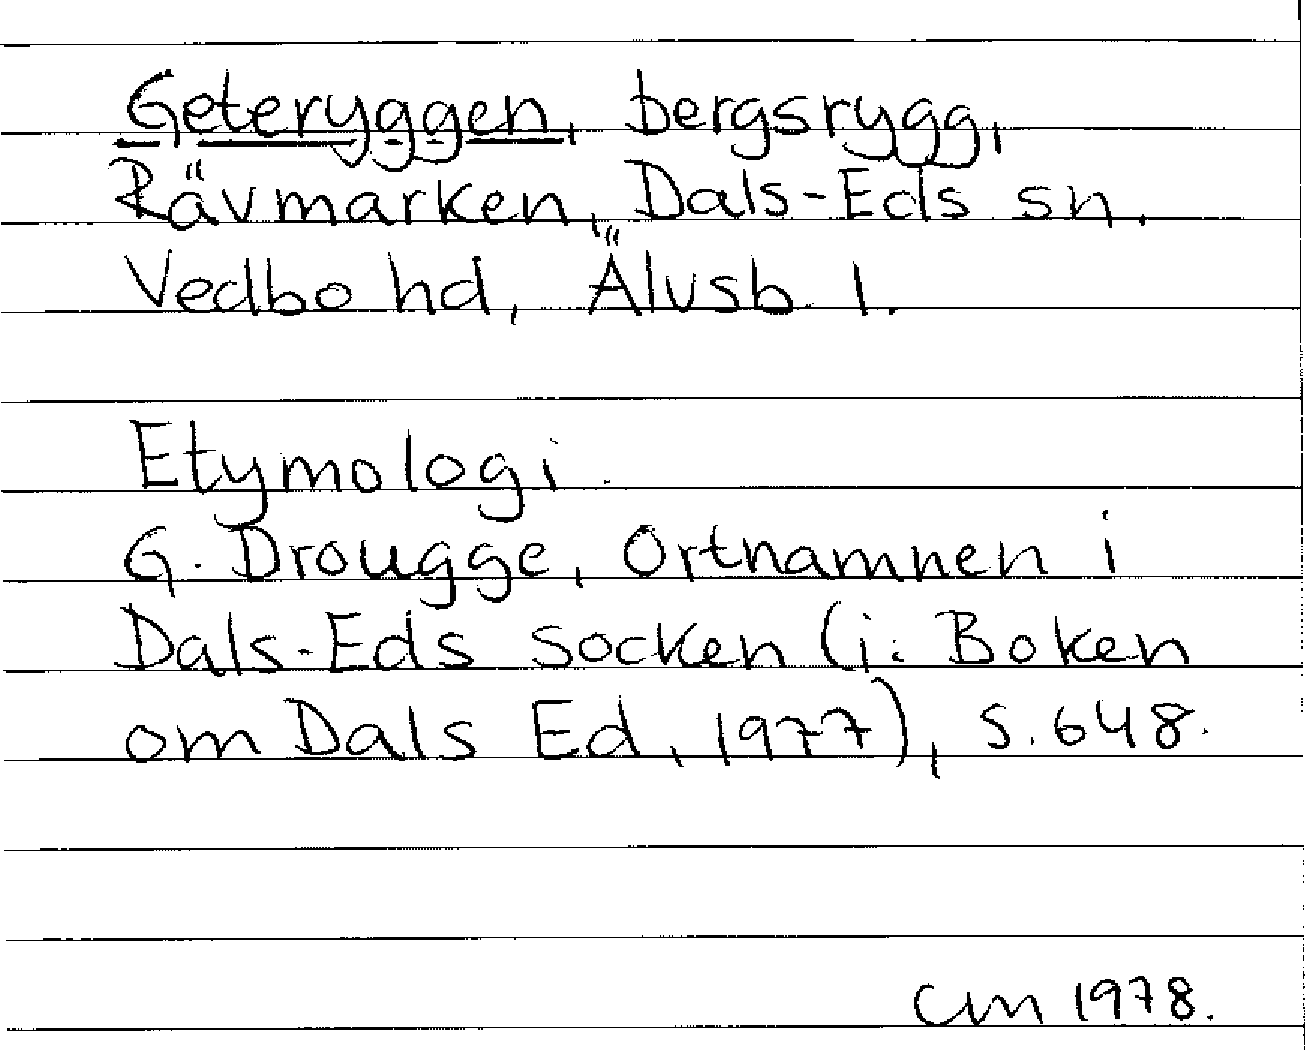 Geteryggen, bergsrygg,
Rävmarken, Dals-Eds sn.
Vedbo hd, Älvsb. l.
Etymologi.
G. Drougge, Ortnamnen i
Dals-Eds socken (i: Boken
om Dals Ed, 1977), s. 648.
CM 1978.